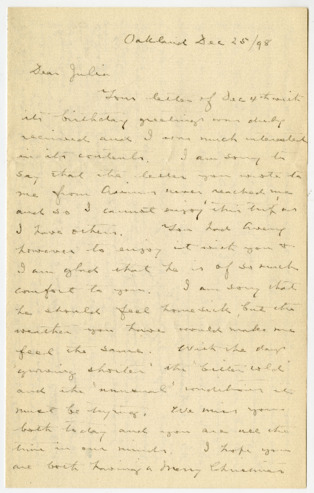 Oakland Dec 25/98
Dear Julia
Your letter of Dec 4 with
its birthday greetings was duly
received and I was much interested
in its contents. I am sorry to
say that the letter you wrote to
me from never reached me
and so I cannot enjoy this trip as
I have others. You had
however to enjoy it with you &
I am glad that he is of so much
comfort to you. I am sorry that
he should feel homesick but the
weather you have would make me
feel the same. With the days
growing shorter the 'bitter cold'
and the 'unusual' conditions it
must be trying. We miss you
both today and you are all the
time in our minds. I hope you
are both having a Merry Christmas